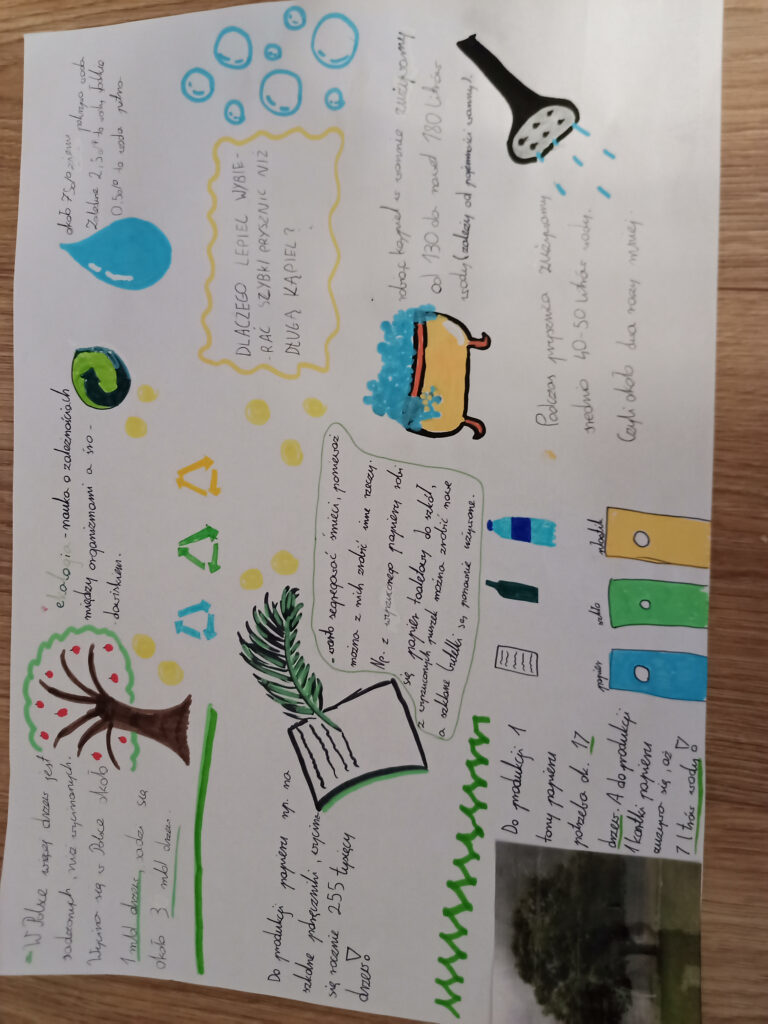 - W Polsce więcej drzew jest
sadzonych, niż wycinanych.
Wycina się w Polsce około
1 mld drzew, sadzi się
około 3 mld drzew.
ekologia - nauka o zależnościach
między organizmami a śro-
dowiskiem.
około 75% ziemi pokrywa woda
2,5% to wody słodkie
0.5% to woda pitna.
DLACZEGO LEPIEJ WYBIE-
-RAĆ SZYBKI PRYSZNIC NIŻ
DŁUGĄ KĄPIEL?
Do produkcji papieru np. na
szkolne podręczniki, wycina
się rocznie 255 tysięcy
drzew!
- warto segregować śmieci, ponieważ
można z nich zrobić inne rzeczy.
Np. z wyrzuconego papieru robi
się papier toaletowy do szkół,
z wyrzuconych puszek można zrobić nowe
a szklane butelki są ponownie używane.
robiąc kąpiel w wannie zużywamy
od 130 do nawet 180 litrów
wody (zależy od pojemności wanny).
Podczas prysznica zużywamy
średnio 40-50 litrów wody.
Czyli około dwa razy mniej.
Do produkcji 1
tony papieru
potrzeba ok. 17
drzew. A do produkcji
1 kartki papieru
zużywa się, aż
7 l wody!
papier
szkło